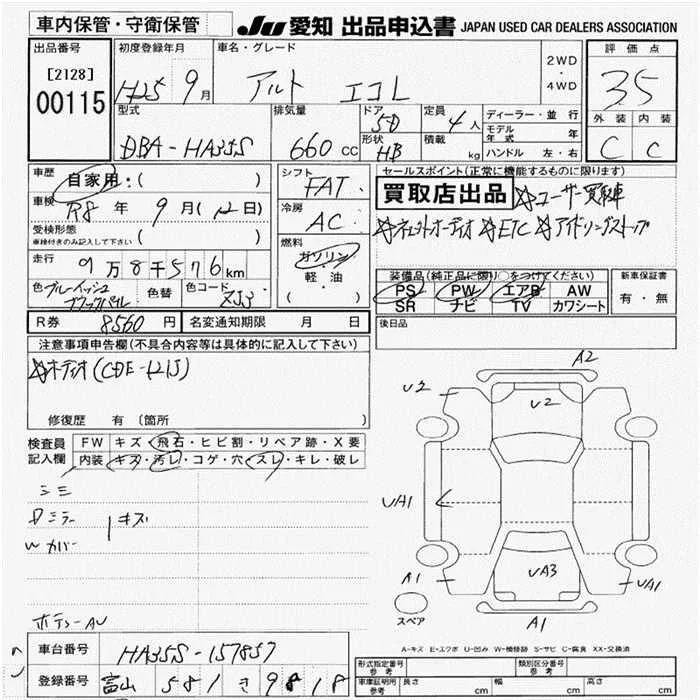 車内保管・守衛保管
JU 愛知 出品申込書 JAPAN USED CAR DEALERS ASSOCIATION
出品番号
[2128]
00115
初度登録年月
H25 9月
車名・グレード
アルト エコL
2WD
・
4WD
評価点
3.5
外装 内装
C C
型式
DBA-HA35S
排気量
660 cc
ドア
5D
形状
HB
定員
4人
積載
kg
ディーラー・並行
モデル年式 年
ハンドル 左・右
車歴
自家用・( )
車検
R8年 9月(12日)
受検形態
車検付きのみ記入して下さい ( )
走行
9万8千576km
色 ブルーイッシュブラックパール
色替
色コード
ZJ3
シフト
FAT
冷房
AC
燃料
ガソリン
軽・油
( )
セールスポイント(正常に機能するものに限ります)
買取店出品 ☆ユーザー買取車
☆ネットオーディオ ☆ETC ☆アイドリングストップ
装備品(純正品に限り○をつけてください)
PS PW エアB AW
SR ナビ TV カワシート
新車保証書
有・無
R券 8560円
名変通知期限 月 日
後日品
注意事項申告欄(不具合内容等は具体的に記入して下さい)
☆オーディオ(CDE-121J)
修復歴 有 〔箇所 〕
検査員
記入欄
FW キズ・飛石・ヒビ割・リペア跡・X要
内装 キズ・汚レ・コゲ・穴・スレ・キレ・破レ
ミラー キズ
W カバー
A2
U2
U2
UA1
UA3
A1
UA1
A1
スペア
A-キズ E-エクボ U-凹み W-補修跡 S-サビ C-腐食 XX-交換済
車台番号
HA35S-157857
登録番号
富山 581 き 9818
形式指定番号
参考
類別区分番号
参考
車庫証明用
参考
長さ cm
幅 cm
高さ cm